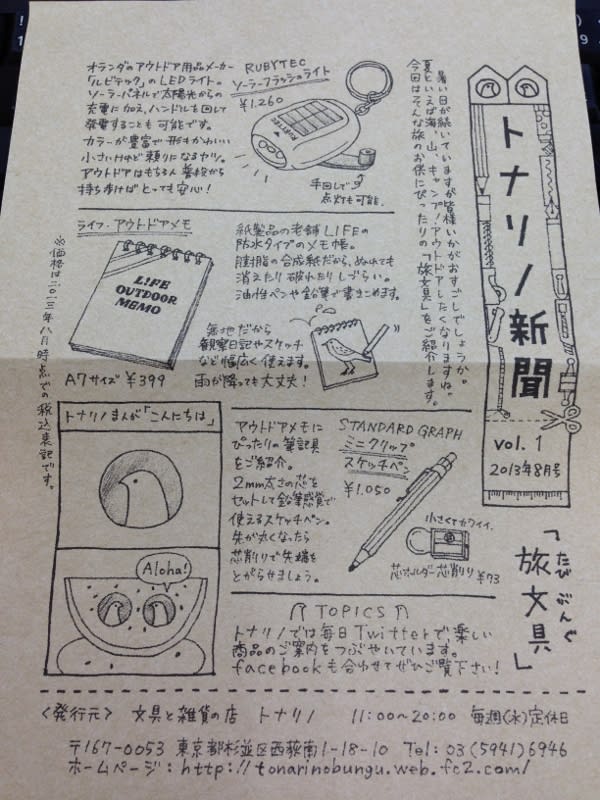 トナリノ新聞
vol. 1
2013年8月号
「旅文具」
たび ぶんぐ
暑い日が続いていますが皆様いかがおすごしでしょうか。
夏といえば海、山、キャンプ!アウトドアしたくなりますね。
今回はそんな旅のお供にぴったりの「旅文具」をご紹介します。
オランダのアウトドア用品メーカー
「ルビテック」のLEDライト。
ソーラーパネルで太陽光からの
充電に加え、ハンドルを回して
発電することも可能です。
カラーが豊富で形もかわいい
小さいけれど頼りになるヤツ。
アウトドアはもちろん普段から
持ち歩けばとっても安心!
RUBYTEC
ソーラーフラッシュライト
¥1,260
RUBYTEC
手回しで
点灯も可能。
ライフ・アウトドアメモ
L!FE
OUTDOOR
MEMO
A7サイズ ¥399
紙製品の老舗LIFEの
防水タイプのメモ帳。
樹脂の合成紙だから、ぬれても
消えたり破れたりしづらい。
油性ペンや鉛筆で書きこめます。
無地だから
観察日記やスケッチ
など幅広く使えます。
雨が降っても大丈夫!
※価格は二〇一三年八月時点での税込表記です。
トナリノまんが「こんにちは」
Aloha!
アウトドアメモに
ぴったりの筆記具
をご紹介。
2mm太さの芯を
セットして鉛筆感覚で
使えるスケッチペン。
先が丸くなったら
芯削りで先端を
とがらせましょう。
STANDARD GRAPH
ミニクリップ
スケッチペン
¥1,050
小さくてカワイイ。
芯ホルダー芯削り ¥73
TOPICS
トナリノでは毎日Twitterで、楽しい
商品のご案内をつぶやいています。
facebookも合わせてぜひご覧下さい!
〈発行元〉 文具と雑貨の店 トナリノ 11:00~20:00 毎週(水)定休日
〒167-0053 東京都杉並区西荻南1-18-10 Tel: 03(5941)6946
ホームページ:http://tonarinobungu.web.fc2.com/